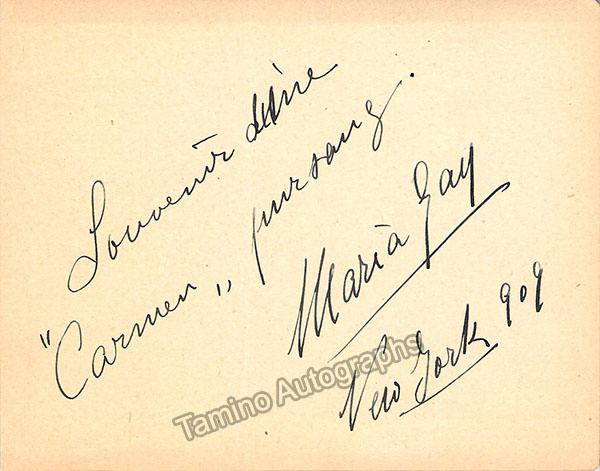 Souvenir d'une
"Carmen„ pur sang.
Maria Gay
New York 909
Tamino Autographs